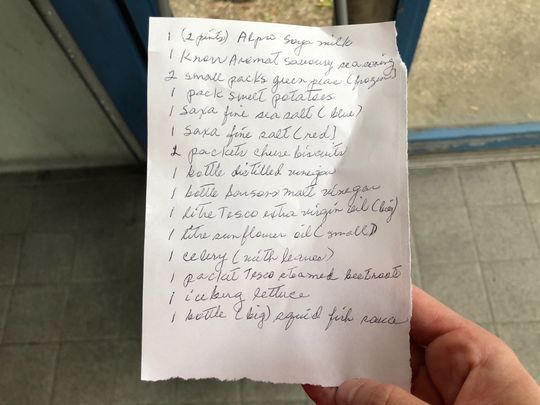 1 (2 pints) Alpro soya milk
1 Knorr Aromat savoury seasoning
2 small packs green peas (frozen)
1 pack sweet potatoes
1 Saxa fine sea salt (blue)
1 Saxa fine salt (red)
2 packets cheese biscuits
1 bottle distilled vinegar
1 bottle Sarsons malt vinegar
1 litre Tesco extra virgin oil (big)
1 litre sunflower oil (small)
1 celery (with leaves)
1 packet Tesco steamed beetroots
1 iceburg lettuce
1 bottle (big) squid fish sauce